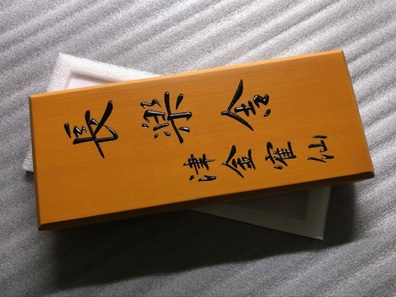 長樂舍
津金寉仙